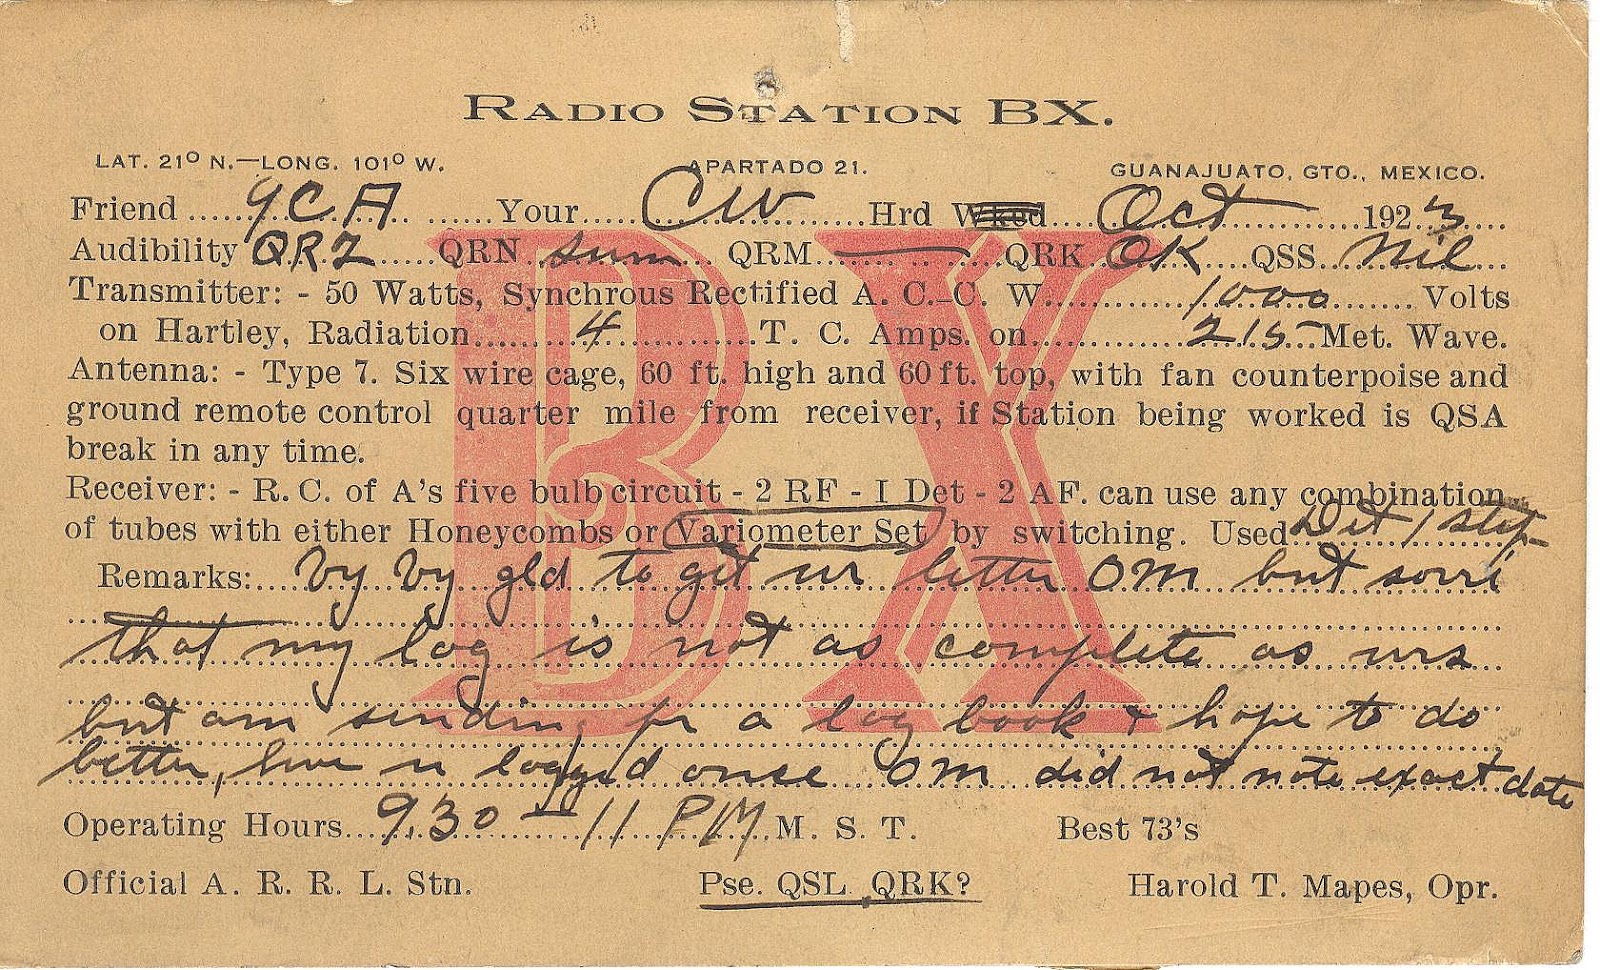 RADIO STATION BX.
LAT. 21° N.—LONG. 101° W. APARTADO 21. GUANAJUATO, GTO., MEXICO.
Friend 9CA Your CW Hrd Wked Oct 1923
Audibility QRZ QRN sum QRM — QRK OK QSS Nil
Transmitter: - 50 Watts, Synchrous Rectified A. C.-C. W. 1000 Volts
on Hartley, Radiation 4 T. C. Amps. on 215 Met. Wave.
Antenna: - Type 7. Six wire cage, 60 ft. high and 60 ft. top, with fan counterpoise and
ground remote control quarter mile from receiver, if Station being worked is QSA
break in any time.
Receiver: - R. C. of A's five bulb circuit - 2 RF - I Det - 2 AF. can use any combination
of tubes with either Honeycombs or Variometer Set by switching. Used Det 1 step
Remarks: Vy Vy gld to get ur letter OM but sorri
that my log is not as complete as urs
but am sending fr a log book & hope to do
better, hve u logged once OM did not note exact date
Operating Hours 9.30 — 11 PM M. S. T. Best 73's
Official A. R. R. L. Stn. Pse. QSL QRK? Harold T. Mapes, Opr.
BX